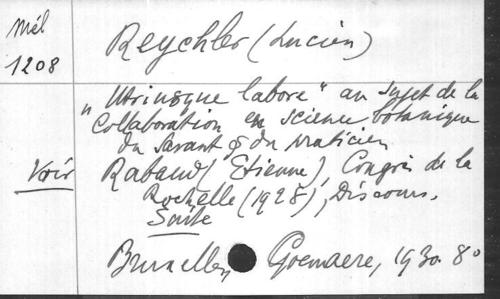 Mél
1208
Reychler (Lucien)
„Utrinsque labore" au sujet de la
Collaboration en science botanique
du savant & du praticien
Voir Rabaud (Etienne), Congrès de la
Rochelle (1928), Discours.
Suite
Bruxelles Goemaere, 1930. 8°